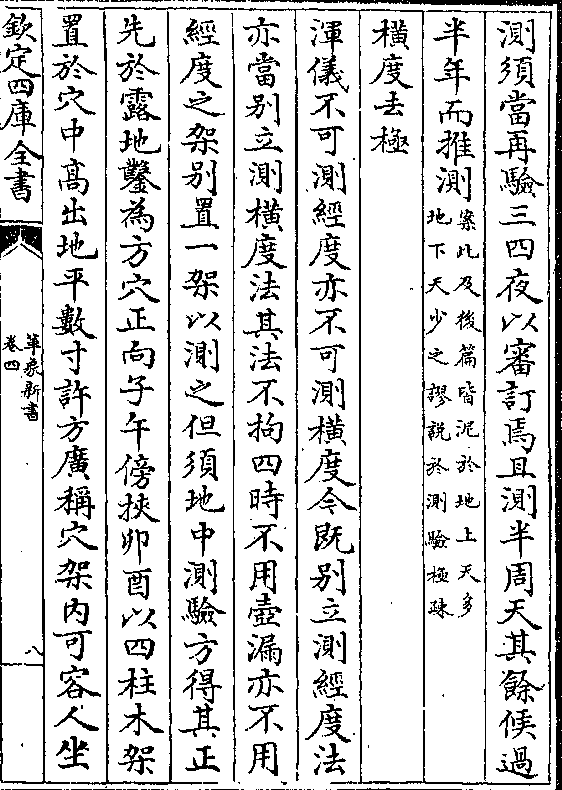 測須當再驗三四夜以審訂焉且測半周天其餘候過
半年而推測案此及後篇皆泥於地上天多
地下天少之謬説於測驗極疎
橫度去極
渾儀不可測經度亦不可測橫度令既别立測經度法
亦當别立測橫度法其法不拘四時不用壺漏亦不用
經度之架别置一架以測之但須地中測驗方得其正
先於露地鑿為方穴正向子午傍挾卯酉以四柱木架
置於穴中髙出地平數寸許方廣稱穴架内可容人坐
欽定四庫全書
革象新書
卷四
八